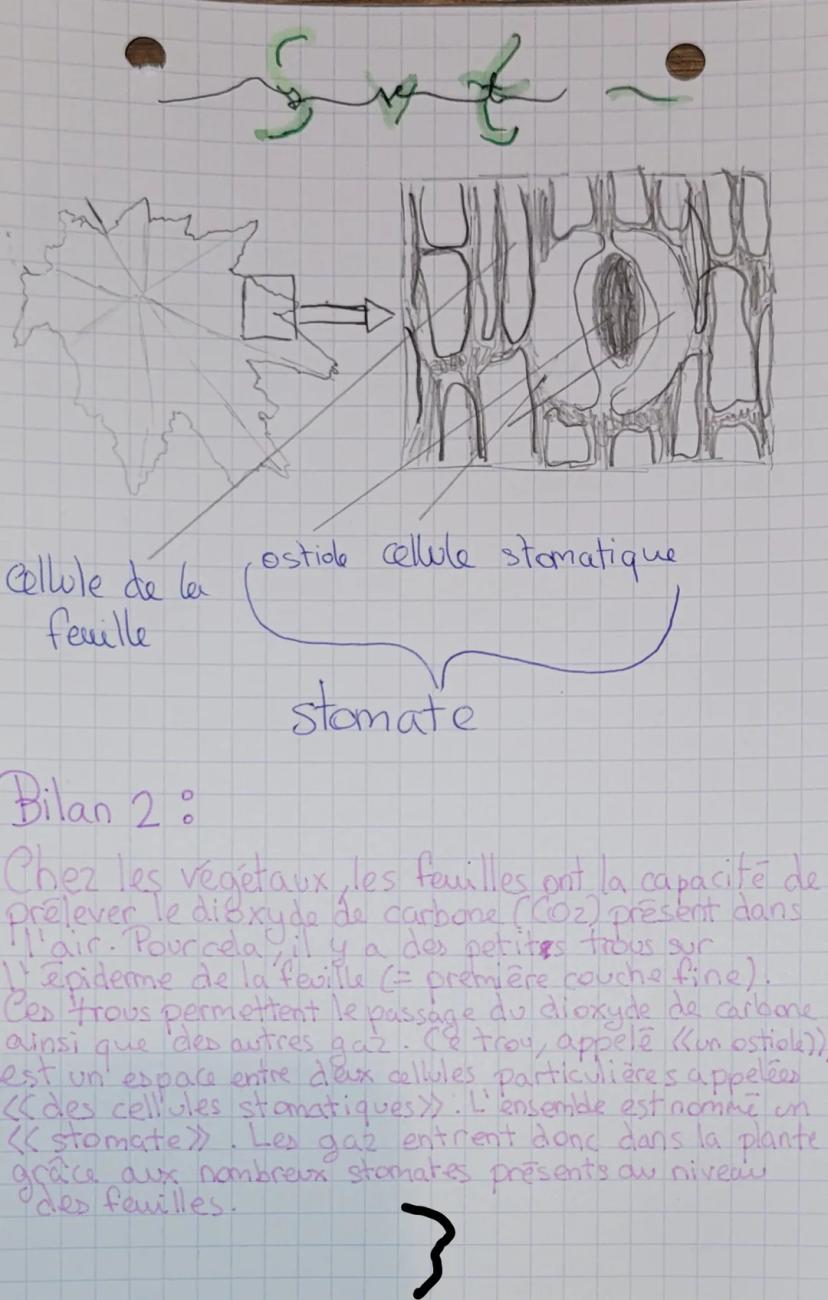 Svt
cellule de la
feuille
ostiole cellule stomatique
stomate
Bilan 2 :
Chez les végétaux, les feuilles ont la capacité de
prélever le dioxyde de carbone (CO2) présent dans
l'air. Pour cela, il y a des petites trous sur
L'épiderme de la feuille (= première couche fine).
Ces trous permettent le passage du dioxyde de carbone
ainsi que des autres gaz. Ce trou, appelé «un ostiole»,
est un espace entre deux cellules particulières appelées
«des cellules stomatiques». L'ensemble est nommé un
«stomate». Les gaz entrent donc dans la plante
grâce aux nombreux stomates présents au niveau
des feuilles.
3